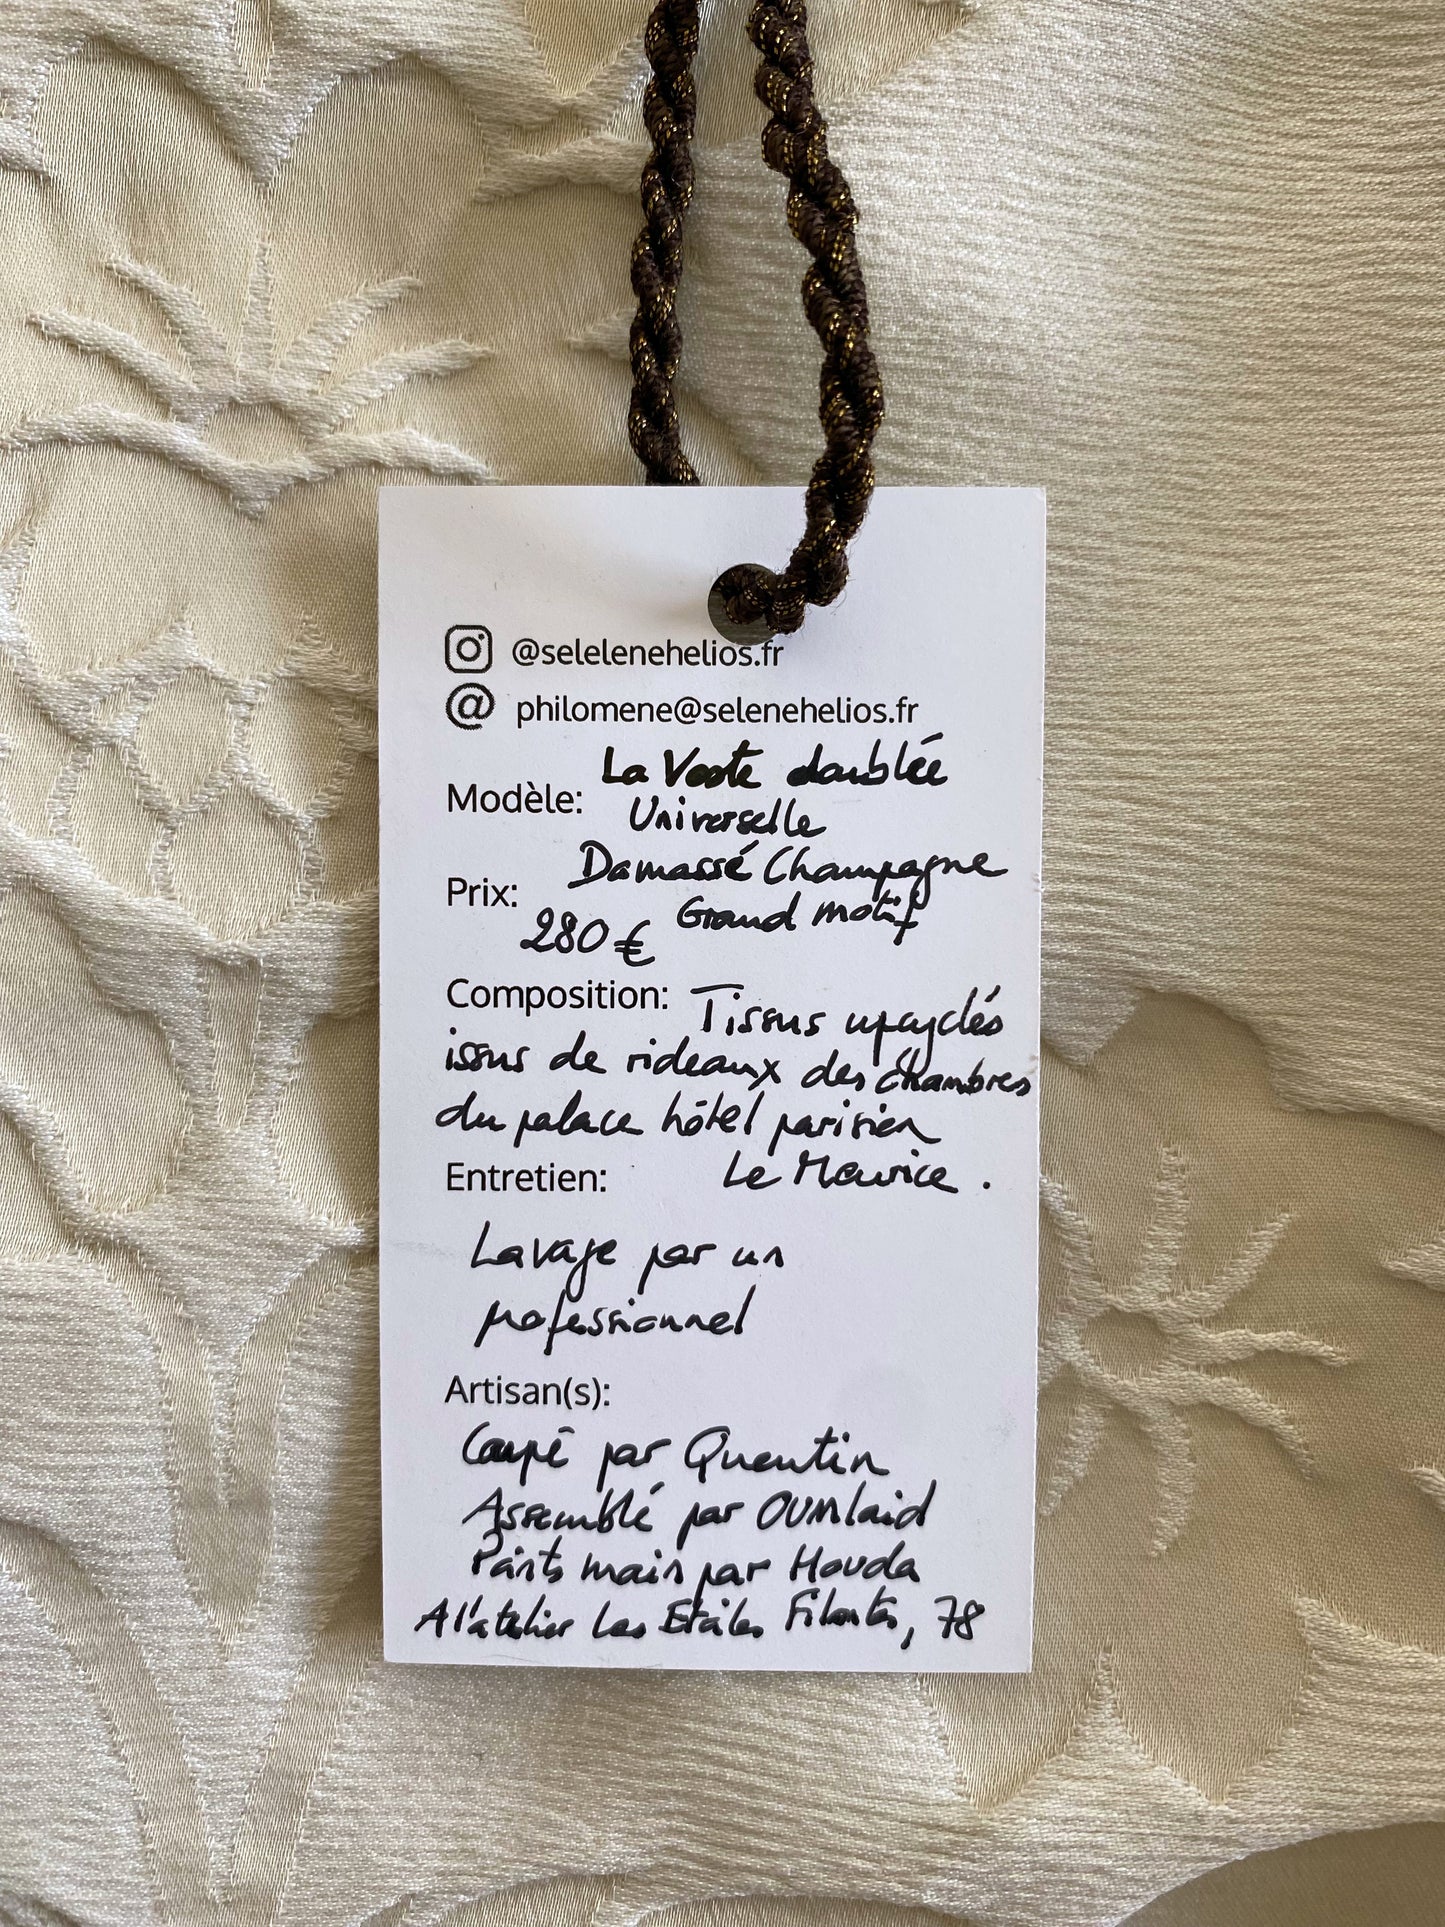 @selelenehelios.fr
@ philomene@selenehelios.fr
Modèle: La Veste doublée
Universelle
Damassé Champagne
Grand motif
Prix: 280 €
Composition: Tissus upcyclés
issus de rideaux des chambres
du palace hôtel parisien
Le Meurice.
Entretien:
Lavage par un
professionnel
Artisan(s):
Coupé par Quentin
Assemblé par OUMlaid
Points main par Houda
A l'atelier Les Etoiles Filantes, 78